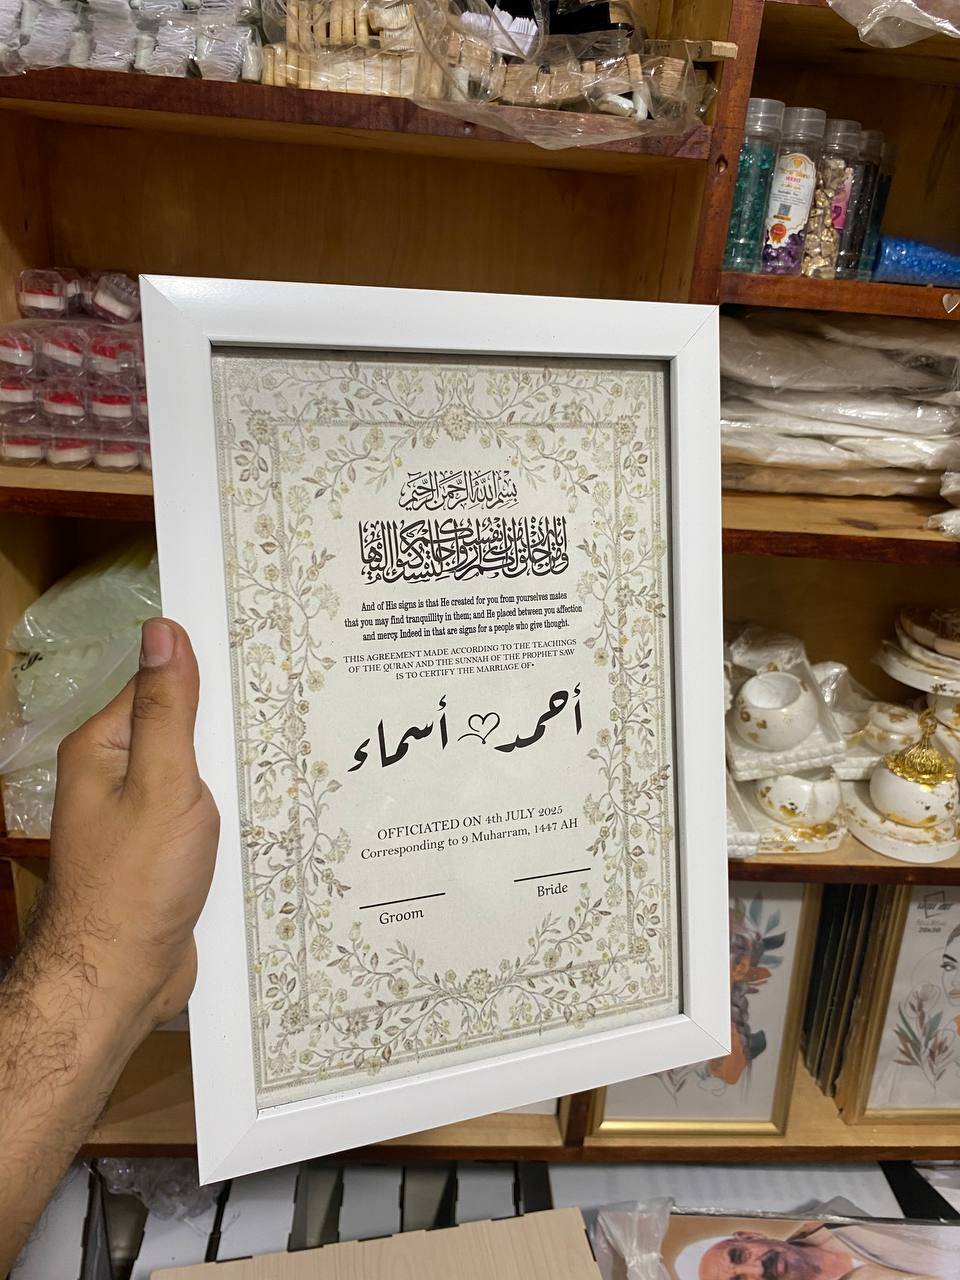 بسم الله الرحمن الرحيم
ومن آياته أن خلق لكم من أنفسكم أزواجا لتسكنوا إليها
And of His signs is that He created for you from yourselves mates
that you may find tranquillity in them; and He placed between you affection
and mercy. Indeed in that are signs for a people who give thought.
THIS AGREEMENT MADE ACCORDING TO THE TEACHINGS
OF THE QURAN AND THE SUNNAH OF THE PROPHET SAW
IS TO CERTIFY THE MARRIAGE OF•
أحمد أسماء
OFFICIATED ON 4th JULY 2025
Corresponding to 9 Muharram, 1447 AH
Groom
Bride